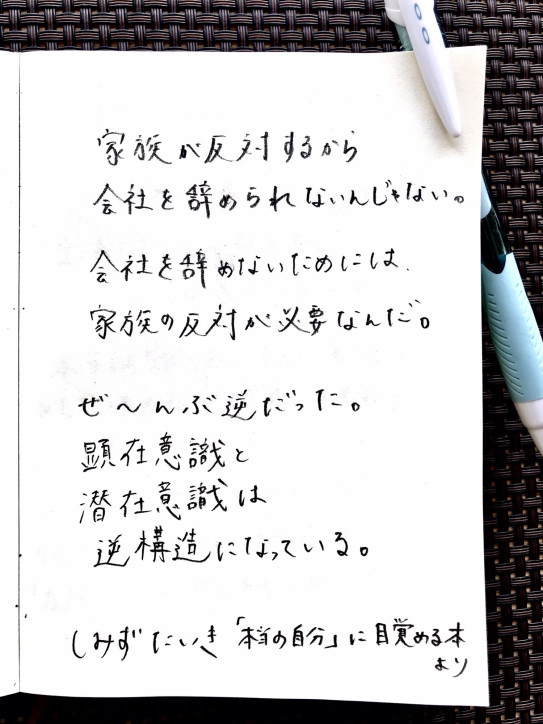 家族が反対するから
会社を辞められないんじゃない。
会社を辞めないためには、
家族の反対が必要なんだ。
ぜ〜んぶ逆だった。
顕在意識と
潜在意識は
逆構造になっている。
しみずたいき「本当の自分」に目覚める本
より